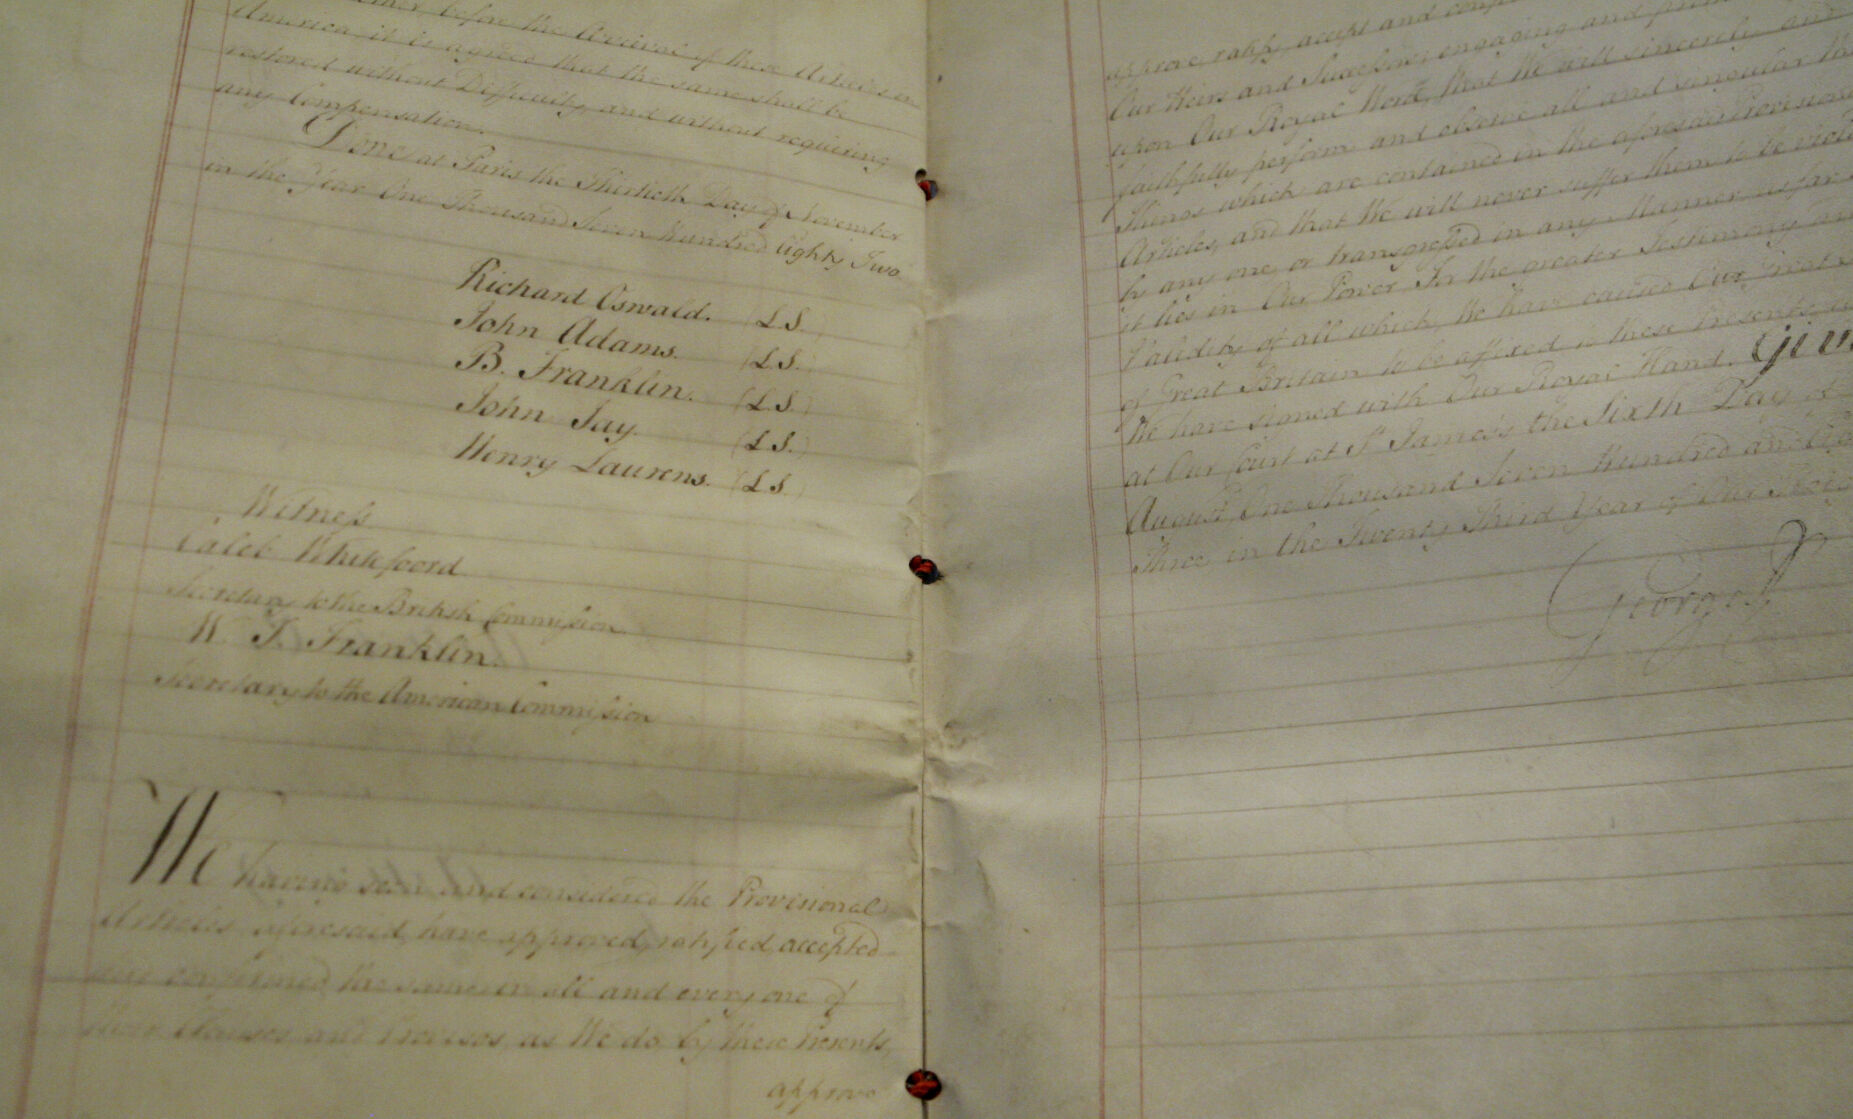 before the Arrival of these Articles in
America it is agreed that the same shall be
restored without Difficulty, and without requiring
any Compensation.
Done at Paris the Thirtieth Day of November
in the Year One Thousand Seven Hundred Eighty Two
Richard Oswald. (L.S.)
John Adams. (L.S.)
B. Franklin. (L.S.)
John Jay. (L.S.)
Henry Laurens. (L.S.)
Witness
Caleb Whitefoord
Secretary to the British Commission.
W. T. Franklin.
Secretary to the American Commission
We having seen and considered the Provisional
Articles aforesaid, have approved, ratified, accepted
and confirmed the same in all and every one of
their Clauses and Provisos, as We do by these Presents,
approve
approve ratify, accept and
Our Heirs and Successors, engaging and
upon Our Royal Word, that We will sincerely and
faithfully perform and observe all and singular the
Things which are contained in the aforesaid Provisional
Articles, and that We will never suffer them to be
by any one, or transgressed in any Manner as far
it lies in Our Power. In the greater Testimony and
Validity of all which, We have caused Our Great
of Great Britain to be affixed to these Presents,
We have signed with Our Royal Hand. Giv
at Our Court at St. James's the Sixth Day of
August, One Thousand Seven Hundred and
Three in the Twenty Third Year of Our
George R